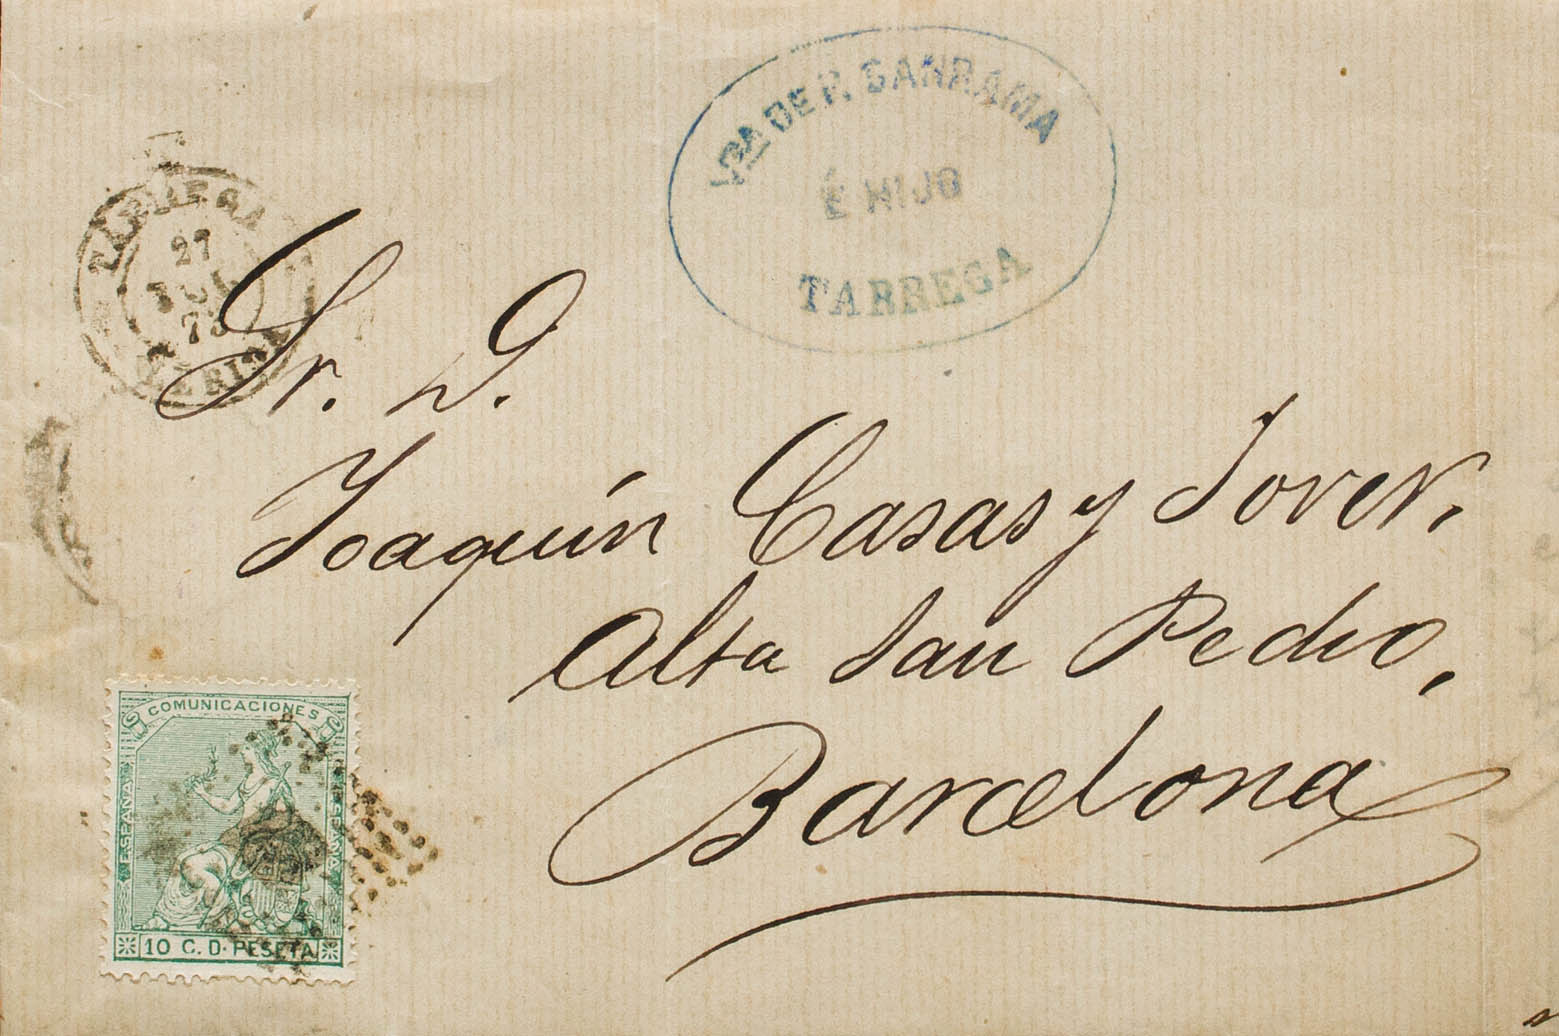 Vda DE P. SANRAMA
É HIJO
TARREGA
TARREGA
27
JUL
73
LERIDA
Sr. D.
Joaquín Casas y Jover.
Alta San Pedro,
Barcelona
COMUNICACIONES
ESPAÑA
ESPAÑA
10 C. D. PESETA